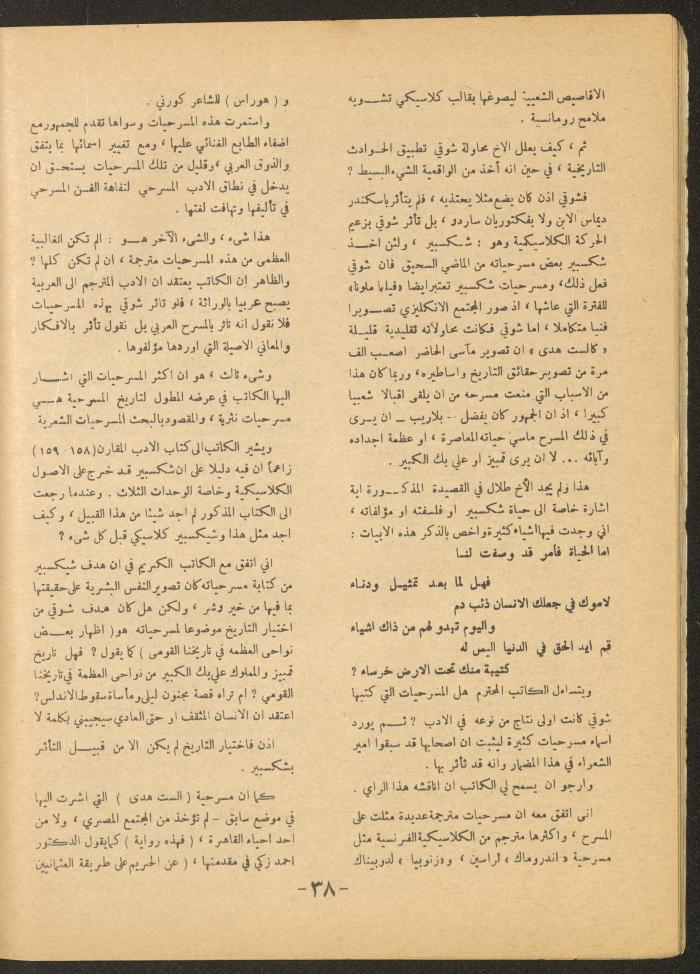 الاقاصيص الشعبية ليصوغها بقالب كلاسيكي تشـوبه
ملامح رومانسية .
ثم ، كيف يعلل الاخ محاولة شوقي تطبيق الحـوادث
التاريخية ، في حين انه أخذ من الواقعية الشيء البسيط ؟
فشوقي اذن كان يضع مثلا يحتذيه ، فلم يتأثر باسكندر
ديماس الابن ولا بفكتوريان ساردو ، بل تأثر شوقي بزعيم
الحركة الكلاسيكية وهو : شـكسبير ، ولئن اخـذ
شكسبير بعض مسرحياته من الماضي السحيق فان شوقي
فعل ذلك، ومسرحيات شكسبير تعتبر ايضا «فيلما ملونا»
للفترة التي عاشها ، اذ صور المجتمع الانكليزي تصـويرا
فنيا متكاملا ، اما شوقي فكانت محاولاته تقليدية قليـلة
« كالست هدى » ان تصوير مآسي الحاضر اصعب الف
مرة من تصوير حقائق التاريخ واساطيره ، وربما كان هذا
من الاسباب التي منعت مسرحه من ان يلقى اقبالا شعبيا
كبيرا ، اذ ان الجمهور كان يفضل - بلاريب - ان يـرى
في ذلك المسرح ماسي حياته المعاصرة ، او عظمة اجداده
وآبائه ... لا ان يرى قمبيز او علي بك الكبير .
هذا ولم يجد الأخ طلال في القصيدة المذكـورة اية
اشارة خاصة الى حياة شكسبير او فلسفته او مؤلفاته ،
اني وجدت فيها اشياء كثيرة واخص بالذكر هذه الابيات :
اما الحياة فأمر قد وصفت لنا
فهل لما بعد تمثيل ودنـاء
لاموك في جعلك الانسان ذئب دم
واليوم تبدو لهم من ذاك اشياء
قم ايد الحق في الدنيا اليس له
كتيبة منك تحت الارض خرساء ؟
ويتساءل الكاتب المحترم هل المسرحيات التي كتبها
شوقي كانت اولى نتاج من نوعه في الادب ؟ ثـم يورد
اسماء مسرحيات كثيرة ليثبت ان اصحابها قد سبقوا امير
الشعراء في هذا المضمار وانه قد تأثر بها .
وارجو ان يسمح لي الكاتب ان اناقشه هذا الراي .
انى اتفق معه ان مسرحيات مترجمة عديدة مثلت على
المسرح ، واكثرها مترجم من الكلاسيكية الفرنسية مثل
مسرحية « اندروماك » لراسين ، و«زنوبيا » لدوبيناك
و ( هوراس ) للشاعر كورني .
واستمرت هذه المسرحيات وسواها تقدم للجمهور مع
اضفاء الطابع الغنائي عليها ، ومع تغيير اسمائها بما يتفق
والذوق العربي ، وقليل من تلك المسرحيات يستحـق ان
يدخل في نطاق الادب المسرحي لتفاهة الفـن المسرحي
في تأليفها وتهافت لغتها .
هذا شىء ، والشىء الآخر هـو : الم تكن الغالبية
العظمى من هذه المسرحيات مترجمة ، ان لم تكن كلها ؟
والظاهر ان الكاتب يعتقد ان الادب المترجم الى العربية
يصبح عربيا بالوراثة ، فلو تاثر شوقي بهذه المسرحيات
فلا نقول انه تاثر بالمسرح العربي بل نقول تأثر بالافكار
والمعاني الاصيلة التي اوردها مؤلفوها .
وشىء ثالث ، هو ان اكثر المسرحيات التي اشـار
اليها الكاتب في عرضه المطول لتاريخ المسرحية هـي
مسرحيات نثرية ، والمقصود بالبحث المسرحيات الشعرية
ويشير الكاتب الى كتاب الادب المقارن (١٥٨ ، ١٥٩)
زاعماً ان فيه دليلا على ان شكسبير قـد خرج على الاصول
الكلاسيكية وخاصة الوحدات الثلاث . وعندما رجعت
الى الكتاب المذكور لم اجد شيئا من هذا القبيل ، وكيف
اجد مثل هذا وشيكسبير كلاسيكي قبل كل شىء ؟
اني اتفق مع الكاتب الكريم في ان هدف شيكسبير
من كتابة مسرحياته كان تصوير النفس البشرية على حقيقتها
بما فيها من خير وشر ، ولكن هل كان هدف شوقي من
اختيار التاريخ موضوعا لمسرحياته هو( اظهار بعـض
نواحي العظمه في تاريخنا القومى ) كما يقول ؟ فهل تاريخ
قمبيز والمملوك علي بك الكبير من نواحي العظمة في تاريخنا
القومي ؟ ام تراه قصة مجنون ليلى ومأساة سقوط الاندلس؟
اعتقد ان الانسان المثقف او حتى العادي سيجيبني بكلمة لا
اذن فاختيار التاريخ لم يكن الا من قبيـل التأثر
بشكسبير .
كما ان مسرحية ( الست هدى ) التي اشرت اليها
في موضع سابق - لم تؤخذ من المجتمع المصري ، ولا من
احد احياء القاهرة ، ( فهذه رواية ) كما يقول الدكتور
احمد زكي في مقدمتها ، ( عن الحريم على طريقة العثمانيين
-٣٨-